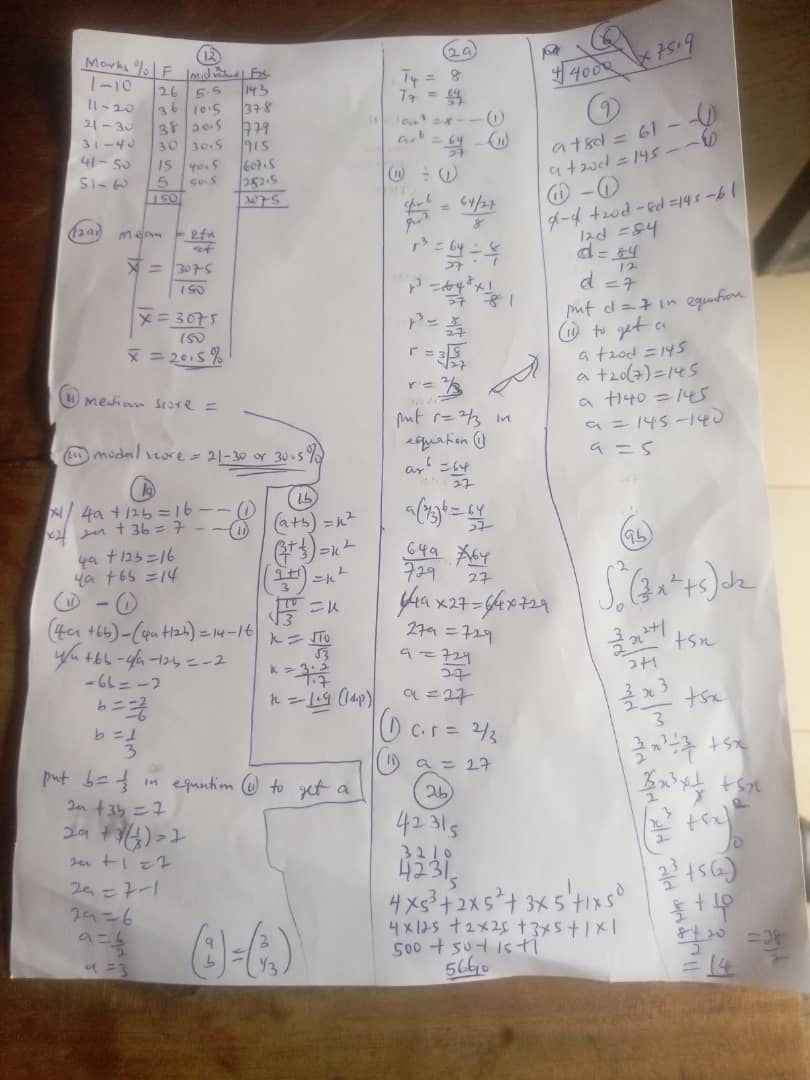 12
Marks % F mid value Fx
1-10 26 5.5 143
11-20 36 10.5 378
21-30 38 20.5 779
31-40 30 30.5 915
41-50 15 40.5 607.5
51-60 5 50.5 252.5
150 3075
12ai mean = Σfx/Σf
x̄ = 3075/150
x̄ = 3075/150
x̄ = 20.5%
ii median score =
iii modal score = 21-30 or 30.5%
1a
x1/ 4a + 12b = 16 -- (i)
x2/ 2a + 3b = 7 -- (ii)
4a + 12b = 16
4a + 6b = 14
(ii) - (i)
(4a + 6b) - (4a + 12b) = 14 - 16
4a + 6b - 4a - 12b = -2
-6b = -2
b = -2/-6
b = 1/3
put b = 1/3 in equation (ii) to get a
2a + 3b = 7
2a + 3(1/3) = 7
2a + 1 = 7
2a = 7 - 1
2a = 6
a = 6/2
a = 3
(a b) = (3 1/3)
1b
(a+b) = k²
(3/1 + 1/3) = k²
(9+1/3) = k²
√10/3 = k
k = √10/√3
k = 3.2/1.7
k = 1.9 (1dp)
2a
T₄ = 8
T₇ = 64/27
ar³ = 8 -- (i)
ar⁶ = 64/27 -- (ii)
(ii) ÷ (i)
ar⁶/ar³ = 64/27/8
r³ = 64/27 ÷ 8/1
r³ = 64⁸/27 × 1/8 1
r³ = 8/27
r = ³√8/27
r = 2/3
put r = 2/3 in
equation (i)
ar⁶ = 64/27
a(2/3)⁶ = 64/27
64a/729 = 64/27
64a × 27 = 64 × 729
27a = 729
a = 729/27
a = 27
(i) c.r = 2/3
(ii) a = 27
2b
4231₅
3210
4231₅
4×5³ + 2×5² + 3×5¹ + 1×5⁰
4×125 + 2×25 + 3×5 + 1×1
500 + 50 + 15 + 1
566₁₀
6
∜4000 × 75.9
9
a + 8d = 61 -- (i)
a + 20d = 145 -- (ii)
(ii) - (i)
a - a + 20d - 8d = 145 - 61
12d = 84
d = 84/12
d = 7
put d = 7 in equation
(ii) to get a
a + 20d = 145
a + 20(7) = 145
a + 140 = 145
a = 145 - 140
a = 5
9b
∫₀² (3/2 x² + 5) dx
3/2 x²⁺¹/2+1 + 5x
3/2 x³/3 + 5x
3/2 x³ ÷ 3/1 + 5x
3/2 x³ × 1/3 + 5x
(x³/2 + 5x)₀²
2³/2 + 5(2)
8/2 + 10/1
8+20/2 = 28/2
= 14